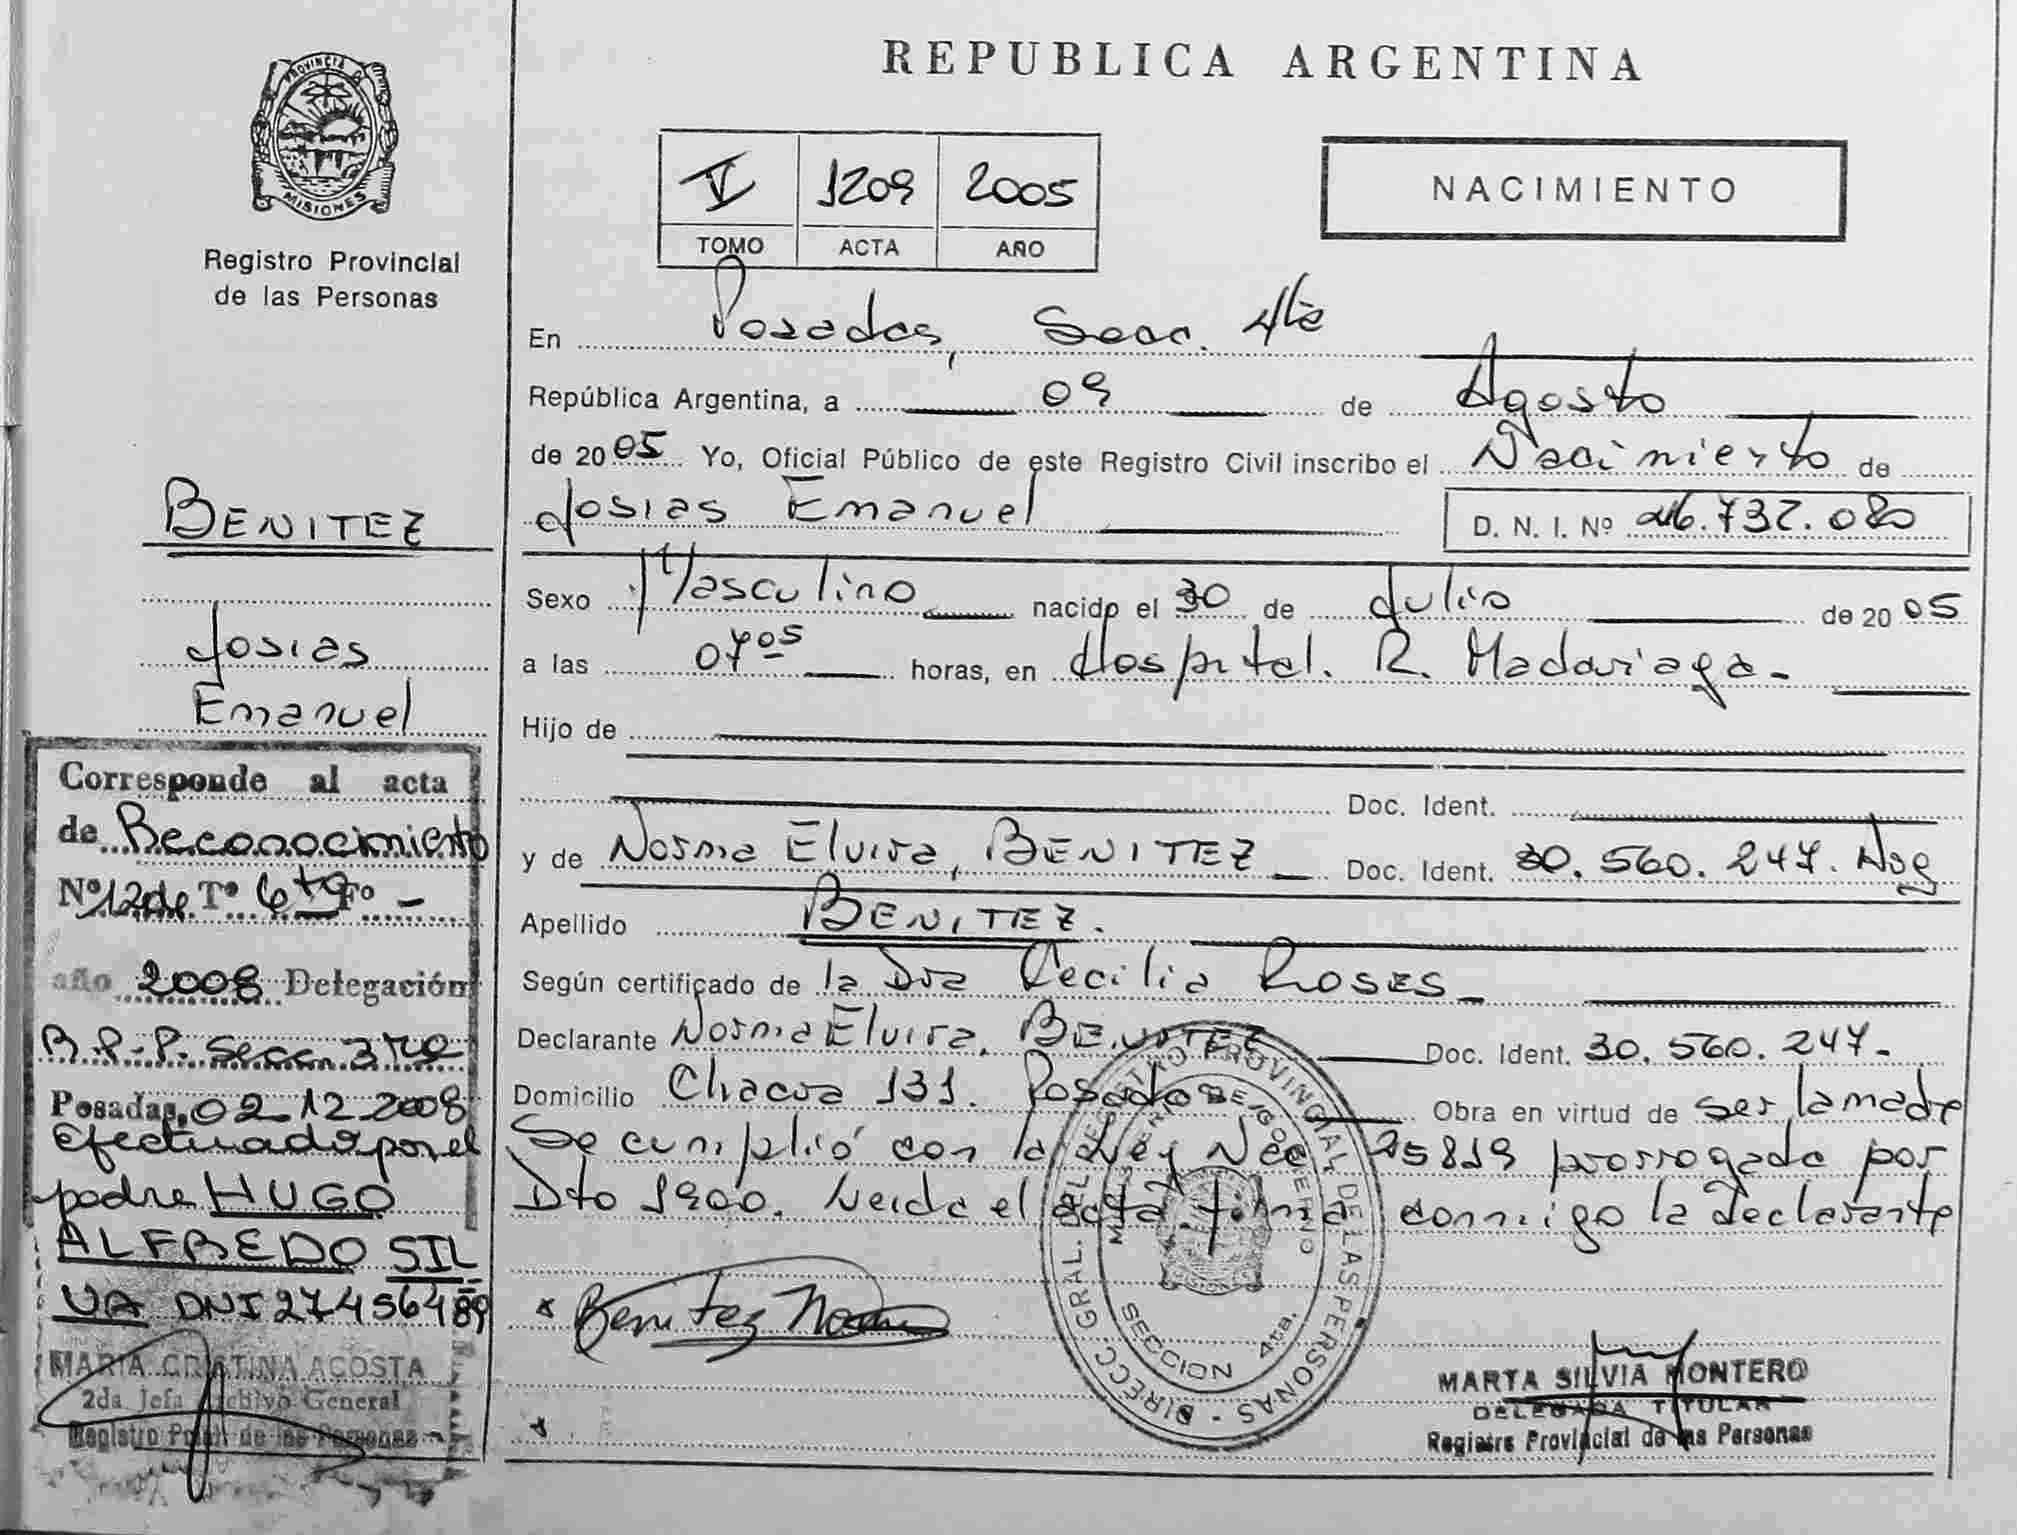 PROVINCIA D
MISIONES
Registro Provincial
de las Personas
BENITEZ
Josias
Emanuel
Corresponde al acta
de Reconocimiento
Nº 12 de Tº 6to Fº -
año 2008 Delegación
R.P.P. Secc. 3ra
Posadas, 02-12-2008
Efectuado por el
padre HUGO
ALFREDO SIL
VA DNI 27456489
MARIA CRISTINA ACOSTA
2da Jefa Archivo General
Registro Pcial. de las Personas
REPUBLICA ARGENTINA
V 1209 2005
TOMO ACTA AÑO
NACIMIENTO
En Posadas, Secc. 4ta
República Argentina, a 09 de Agosto
de 2005 Yo, Oficial Público de este Registro Civil inscribo el Nacimiento de
Josias Emanuel D. N. I. Nº 46.732.080
Sexo Masculino nacido el 30 de Julio de 2005
a las 07 05 horas, en Hospital. R. Madariaga-
Hijo de
Doc. Ident.
y de Norma Elvira, BENITEZ Doc. Ident. 30.560.247. Arg
Apellido BENITEZ.
Según certificado de la Dra Cecilia Roses-
Declarante Norma Elvira, BENITEZ Doc. Ident. 30.560.247-
Domicilio Chacra 131. Posadas Obra en virtud de ser la madre
Se cumplió con la Ley Nac 25819 prorrogada por
Dto 1900. Leida el acta firma conmigo la declarante
x Benitez Norma
DIRECC. GRAL. DEL REGISTRO PROVINCIAL DE LAS PERSONAS
MINISTERIO DE GOBIERNO
SECCION 4ta.
MARTA SILVIA MONTERO
DELEGADA TITULAR
Registro Provincial de las Personas
x